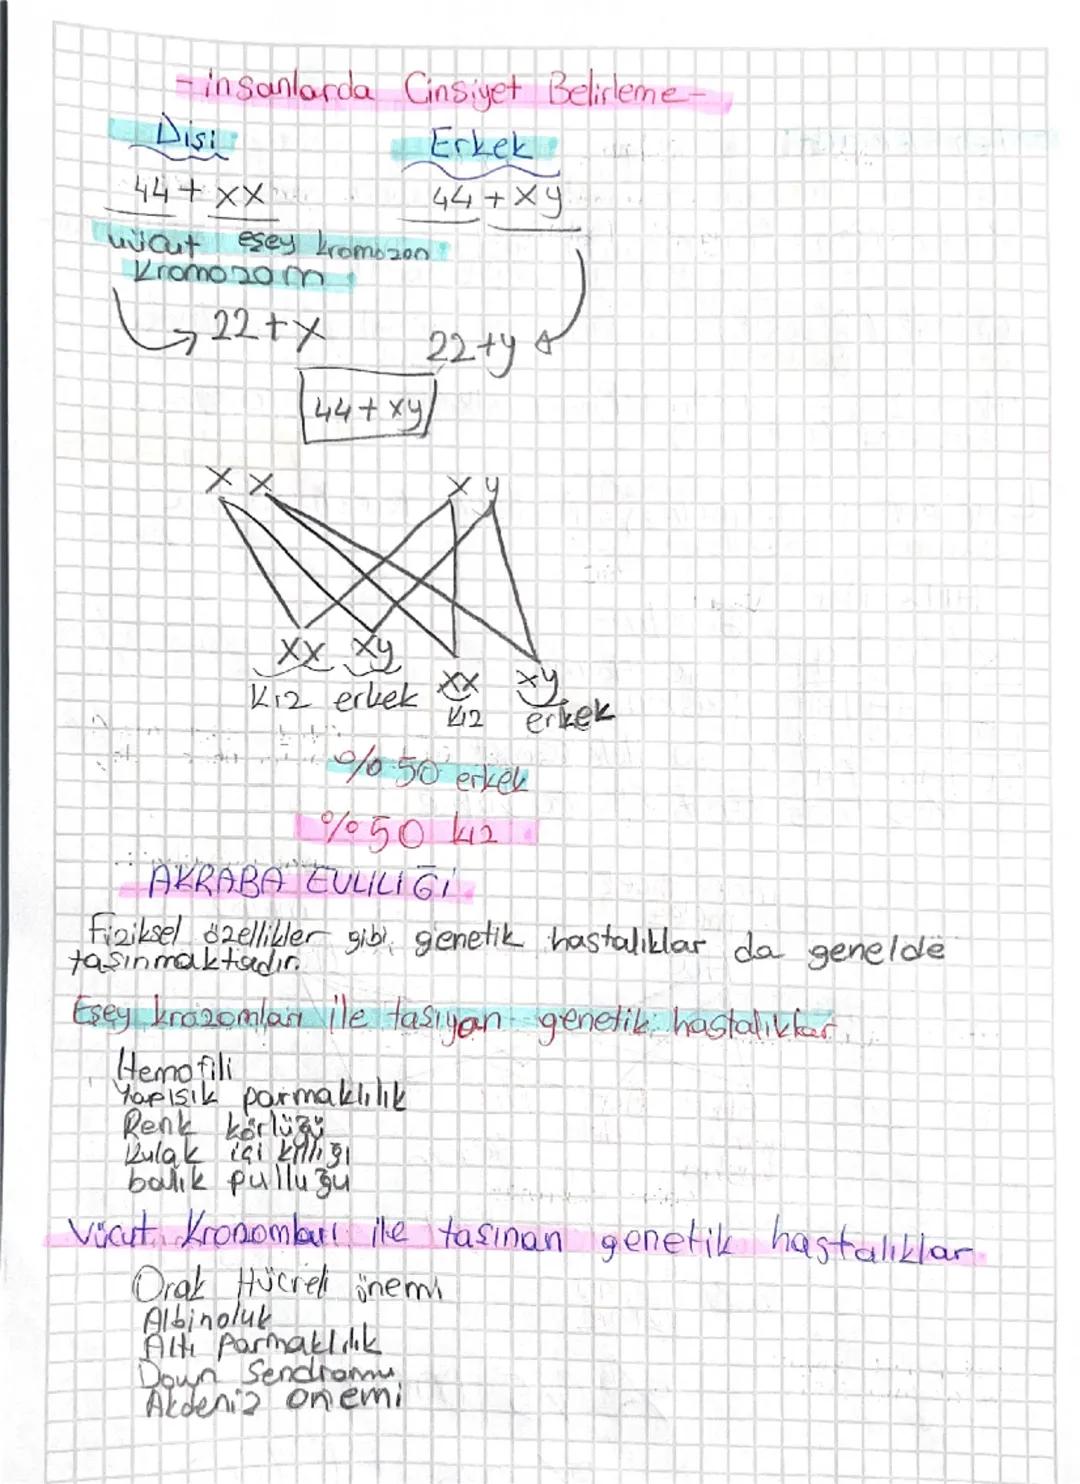 - insanlarda Cinsiyet Belirleme -
Dişi Erkek
44 + xx 44 + xy
vücut eşey kromozon
Kromozom
22+x 22+y
44 + xy
X X X y
XX Xy
Kız erkek XX xy
kız erkek
%50 erkek
%50 kız
AKRABA EVLİLİĞİ
Fiziksel özellikler gibi genetik hastalıklar da genelde
taşınmaktadır.
Eşey krozomları ile tasıyan genetik hastalıklar
Hemofili
Yapısık parmaklılık
Renk körlüğü
Kulak içi kıllığı
balık pulluğu
Vücut Kronomları ile tasınan genetik hastalıklar
Orak Hücreli önemi
Albinoluk
Altı parmaklılık
Down Sendromu
Akdeniz onemi